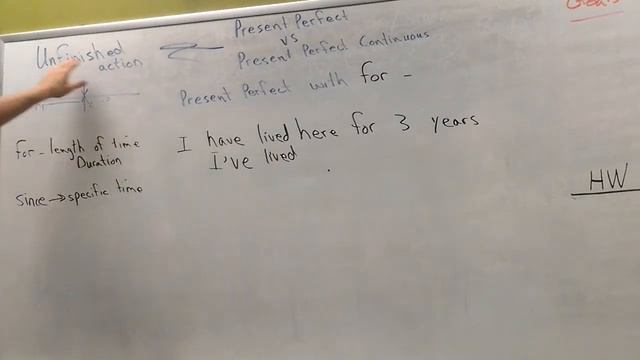 Present Perfect
vs
Present Perfect Continuous
Unfinished
action
Present Perfect with for -
for - length of time
Duration
since → specific time
I have lived here for 3 years
I've lived
Goals
HW